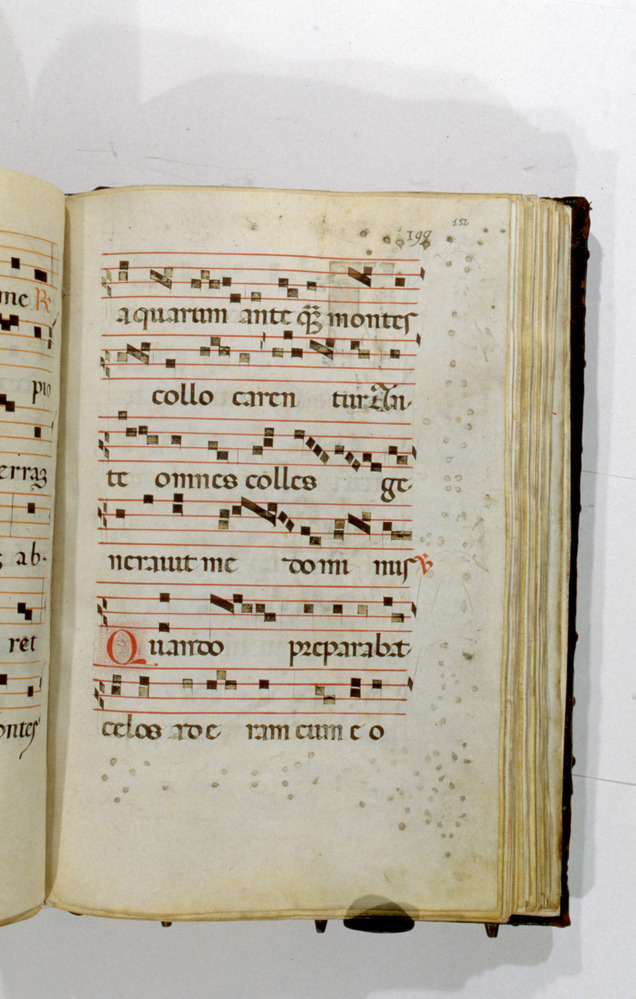 me R
pio
erraz
s ab-
ret
ontes
199
132
aquarum ante q̄ȝ montes
collo caren tur An-
te omnes colles ge-
nerauit me domi nus ℣
Quando preparabat
celos ade ram cum e o